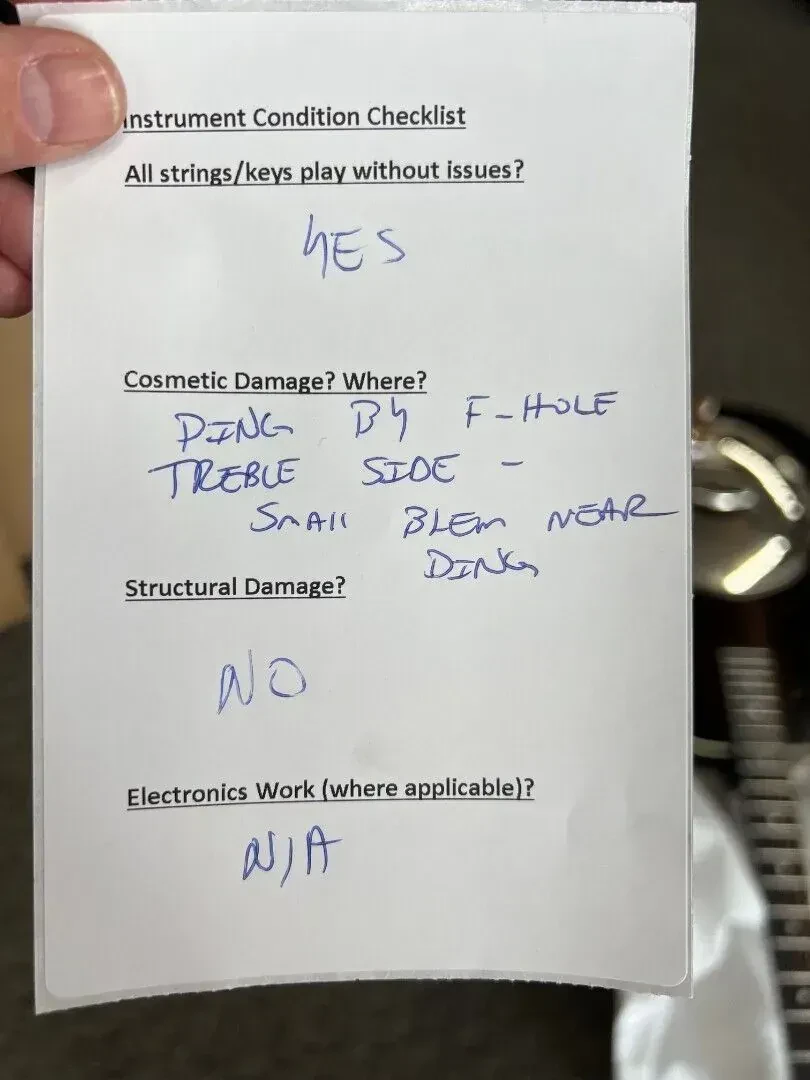 Instrument Condition Checklist
All strings/keys play without issues?
YES
Cosmetic Damage? Where?
DING BY F-HOLE
TREBLE SIDE -
SMAll BLEM NEAR
DING
Structural Damage?
NO
Electronics Work (where applicable)?
N/A